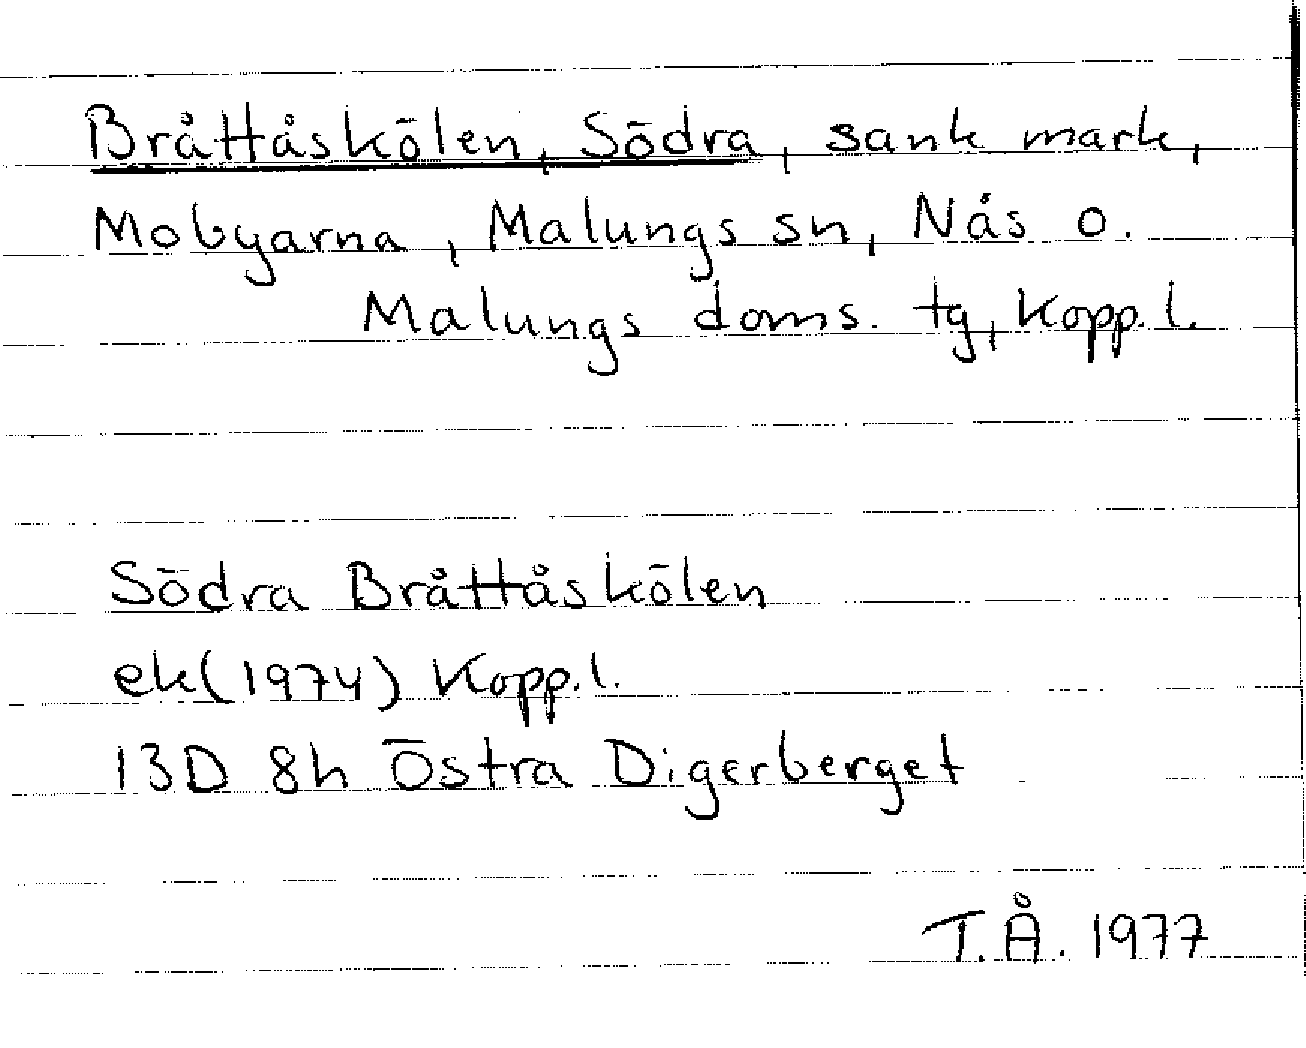 Bråttåskölen, Södra, sank mark,
Mobyarna, Malungs sn, Nås o.
Malungs doms. tg, Kopp. l.
Södra Bråttåskölen
ek(1974) Kopp. l.
13D 8h Östra Digerberget
T.Å. 1977